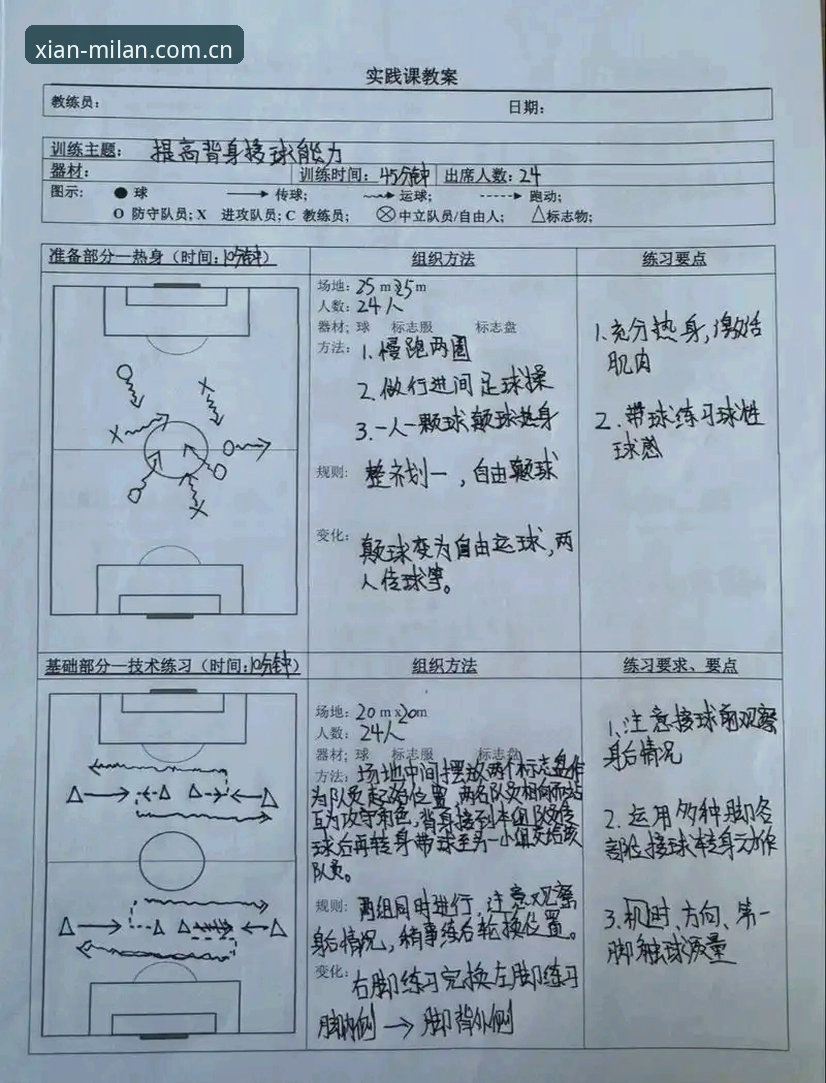 xian-milan.com.cn
实践课教案
教练员: 日期:
训练主题: 提高背身接球能力
器材: 训练时间: 45分钟 出席人数: 24
图示: ● 球 传球; 运球; 跑动;
O 防守队员; X 进攻队员; C 教练员; 中立队员/自由人; △标志物;
准备部分—热身(时间:10分钟) 组织方法 练习要点
场地: 25 m 25 m
人数: 24人
器材; 球 标志服 标志盘
方法: 1. 慢跑两圈
2. 做行进间足球操
3. 一人一颗球颠球热身
规则: 整齐划一,自由颠球
变化: 颠球变为自由运球,两
人传球等。
1. 充分热身,激活
肌肉
2. 带球练习球性
球感
基础部分—技术练习(时间:10分钟) 组织方法 练习要求、要点
场地: 20 m x20m
人数: 24人
器材; 球 标志服 标志盘
方法: 场地中间摆放两个标志盘作
为队员起始位置,两名队员相向而站
互为攻守角色,背身接到本组队员传
球后再转身带球至另一小组交给该
队员。
规则: 两组同时进行,注意观察
身后情况,练后轮换位置。
变化: 右脚练习完换左脚练习
脚内侧 → 脚背外侧
1. 注意接球前观察
身后情况
2. 运用多种脚各
部位接球转身动作
3. 时机、方向、第一
脚触球质量